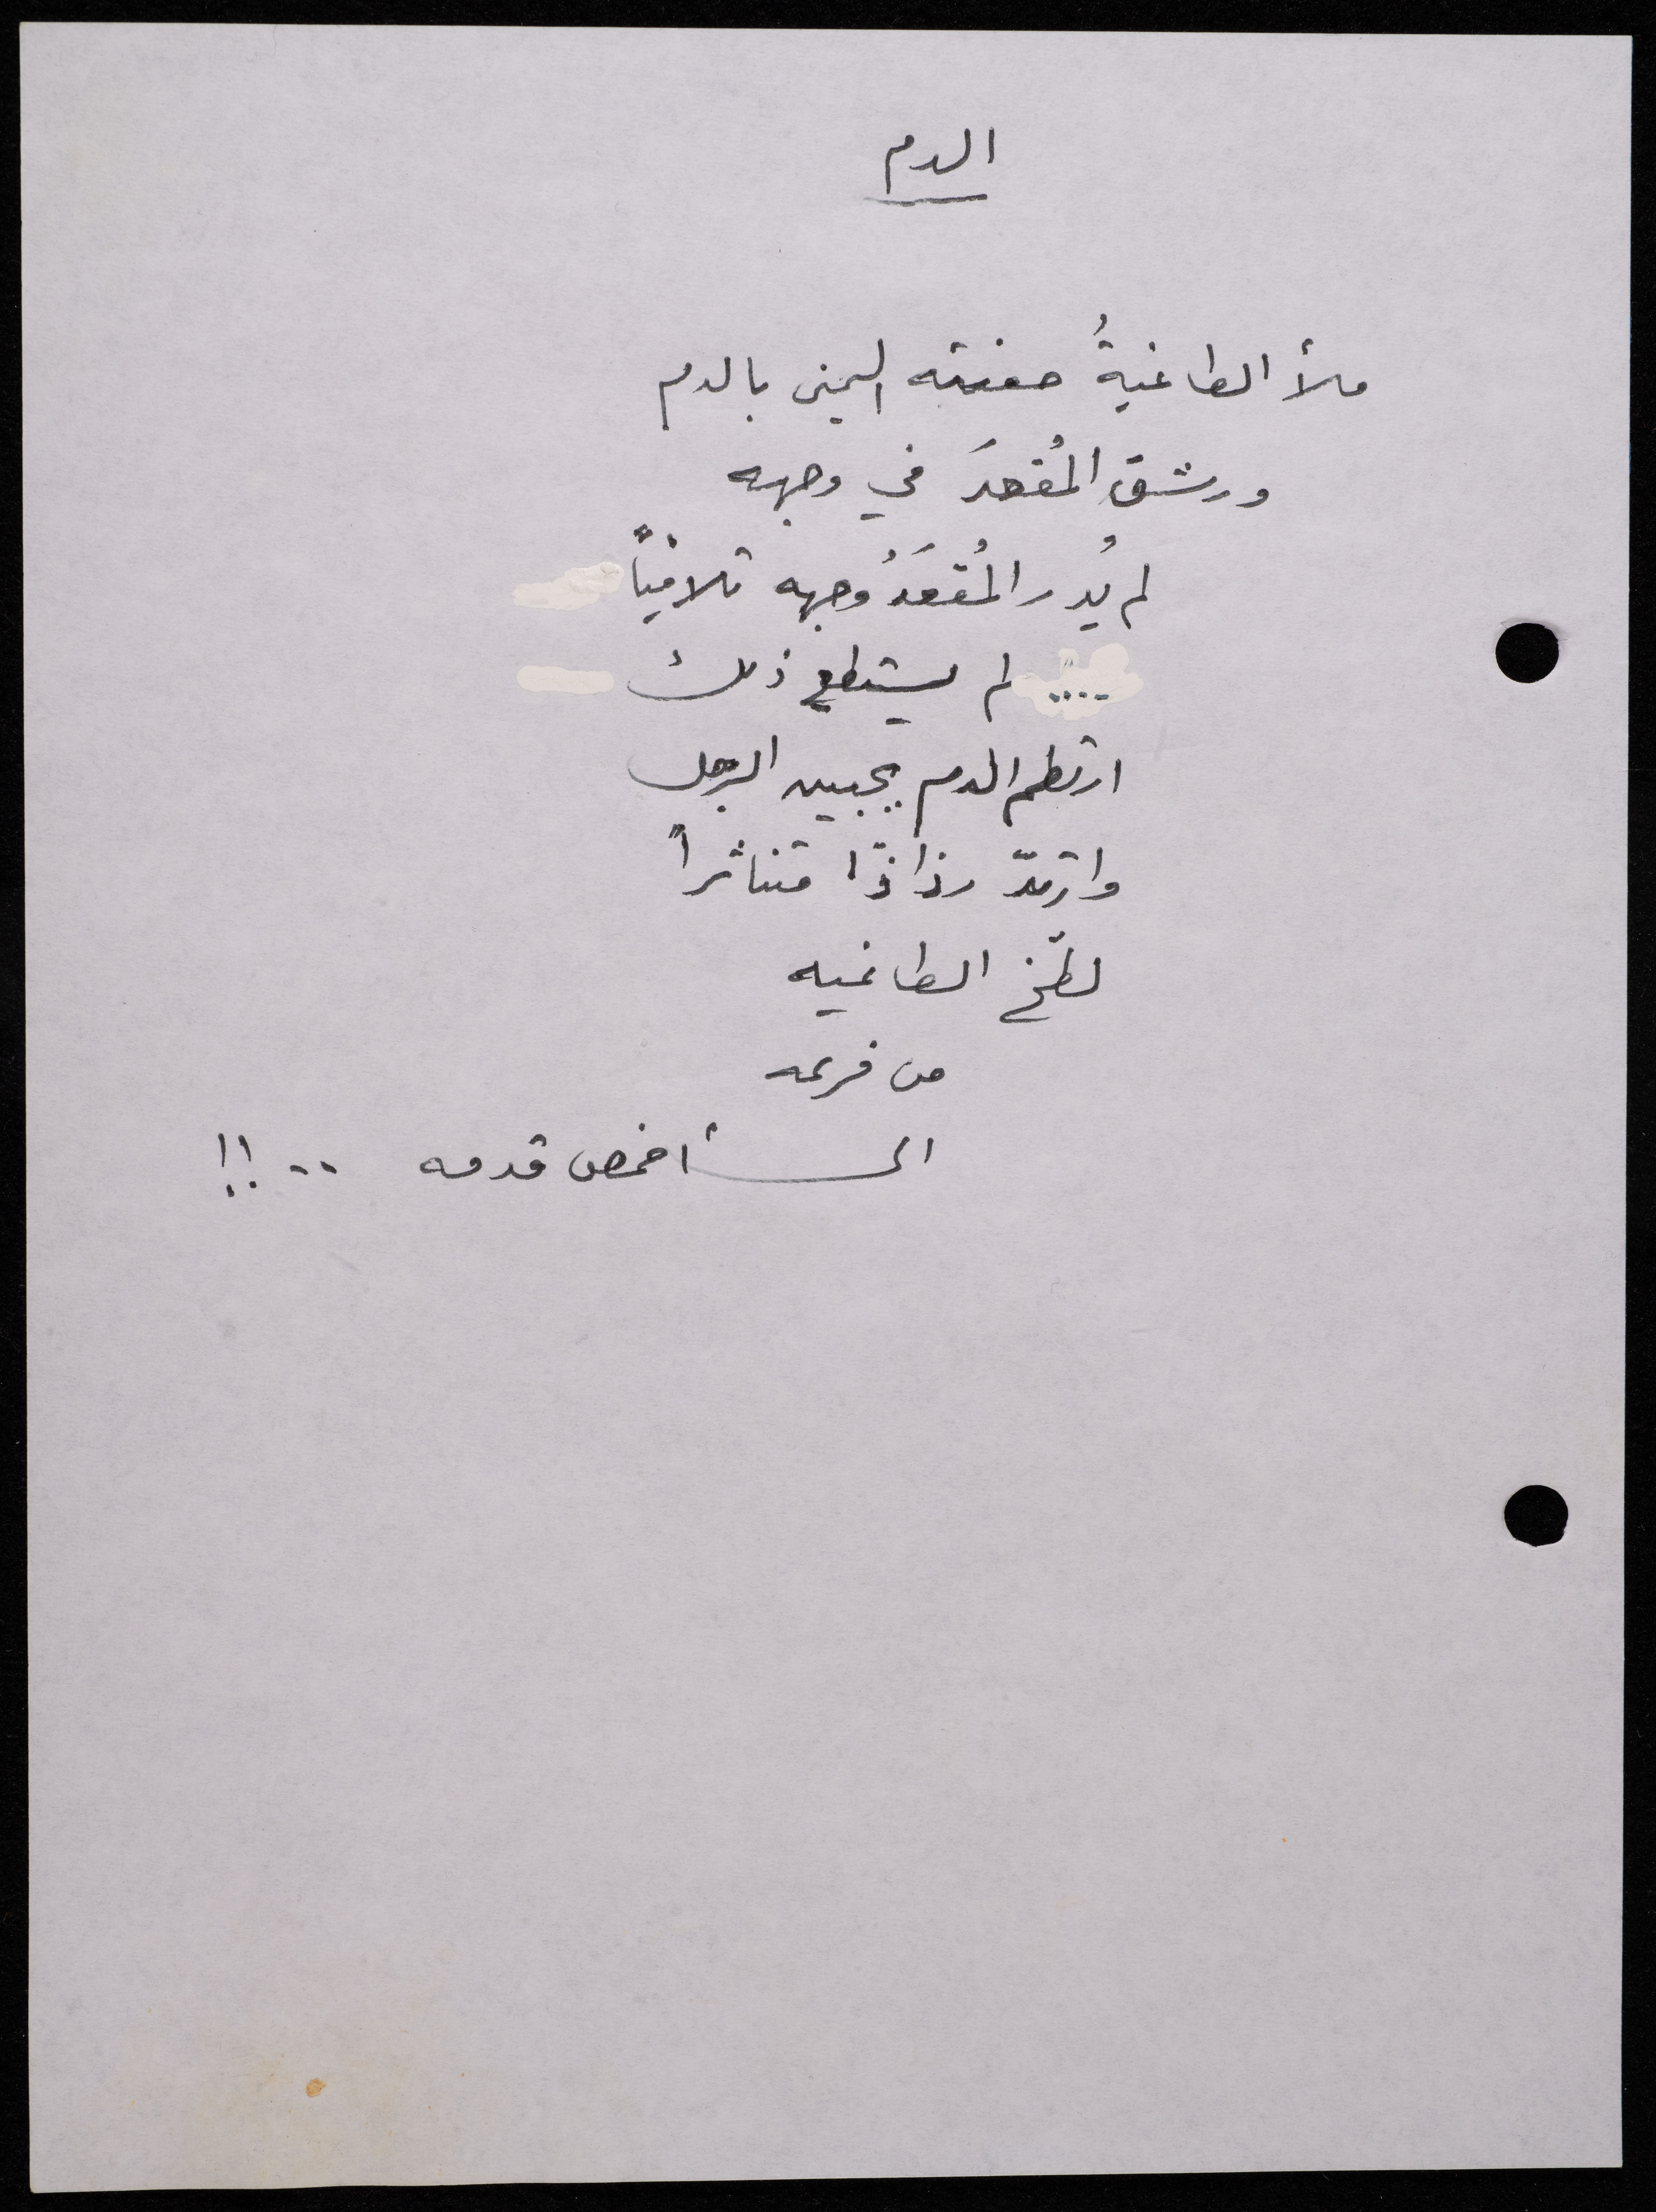 الدم
ملأ الطاغيةُ حفنته اليمنى بالدم
ورشق المُقعدَ في وجهه
لم يُدر المُقعَدُ وجهه تلافياً
.... لم يستطع ذلك
ارتطم الدم بجبين الرجل
وارتدّ رذاذًا متناثراً
لطّخ الطاغيه
من فرعه
الى أخمص قدمه ..!!